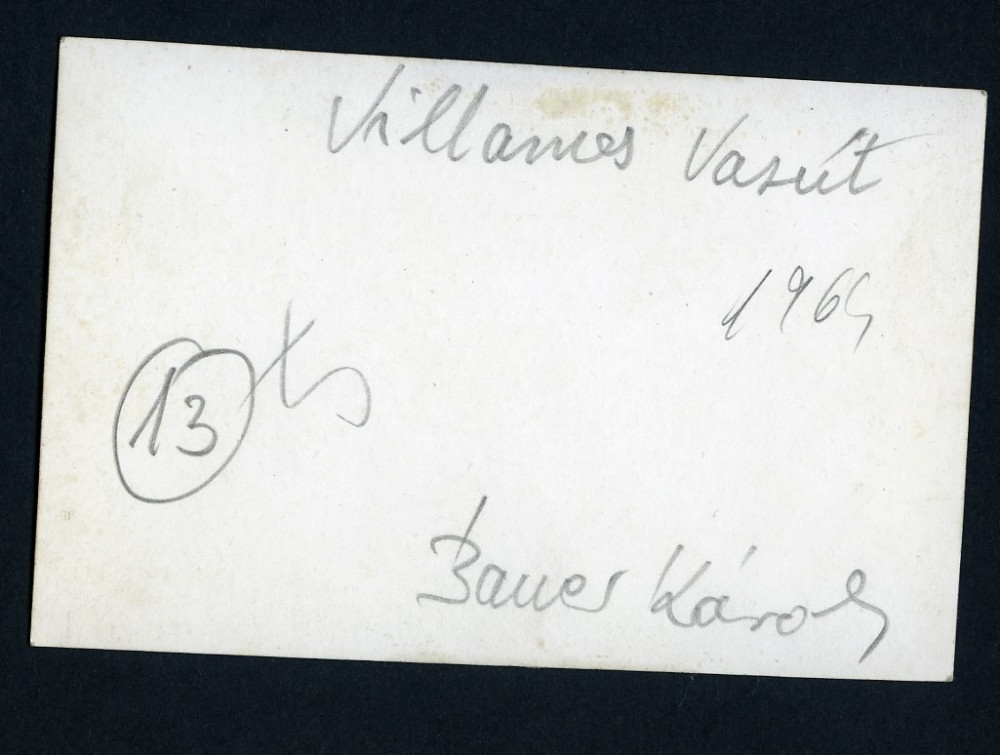 Villamos Vasút
1969
13
Bauer Károly